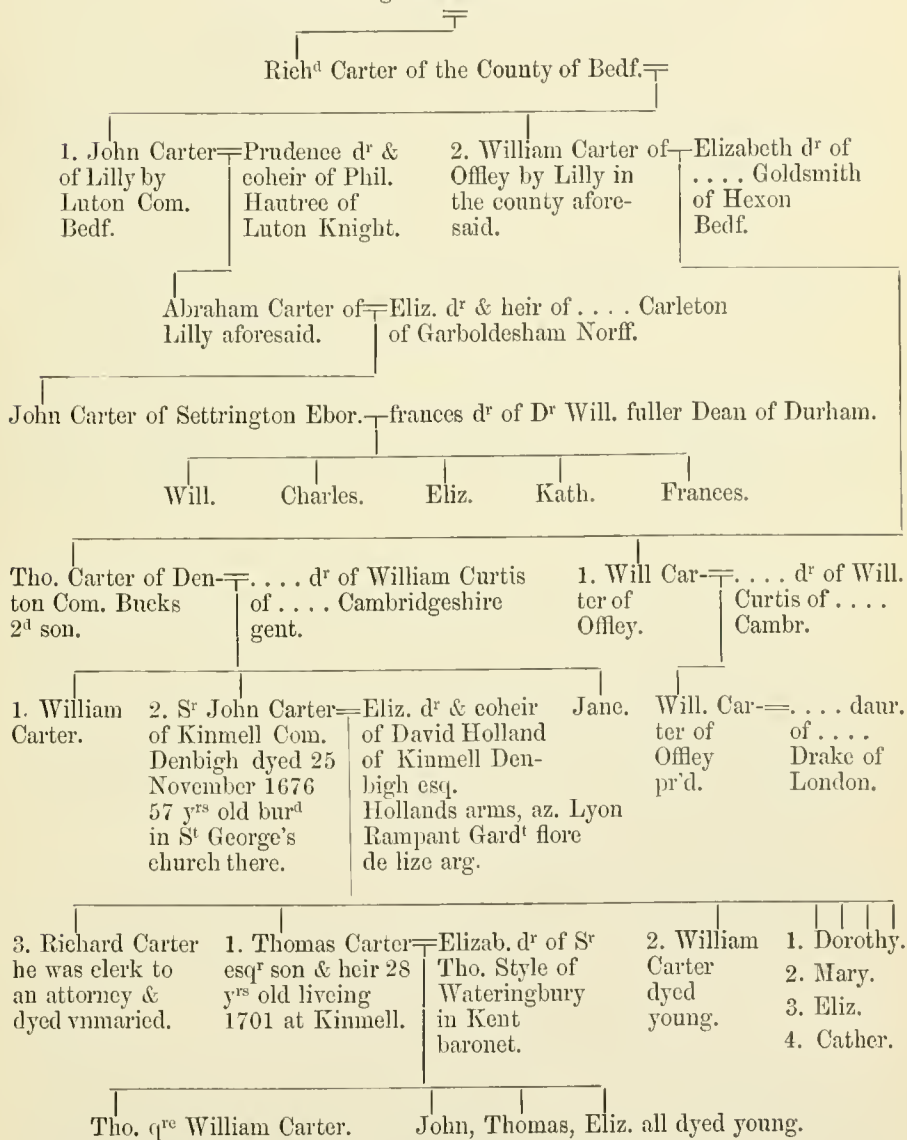 Rich^d Carter of the County of Bedf.
1. John Carter
of Lilly by
Luton Com.
Bedf.
Prudence d^r &
coheir of Phil.
Hautree of
Luton Knight.
2. William Carter of
Offley by Lilly in
the county afore-
said.
Elizabeth d^r of
. . . . Goldsmith
of Hexon
Bedf.
Abraham Carter of
Lilly aforesaid.
Eliz. d^r & heir of . . . . Carleton
of Garboldesham Norff.
John Carter of Settrington Ebor.
frances d^r of D^r Will. fuller Dean of Durham.
Will. Charles. Eliz. Kath. Frances.
Tho. Carter of Den-
ton Com. Bucks
2^d son.
. . . . d^r of William Curtis
of . . . . Cambridgeshire
gent.
1. Will Car-
ter of
Offley.
. . . . d^r of Will.
Curtis of . . . .
Cambr.
1. William
Carter.
2. S^r John Carter
of Kinmell Com.
Denbigh dyed 25
November 1676
57 y^rs old bur^d
in S^t George's
church there.
Eliz. d^r & coheir
of David Holland
of Kinmell Den-
bigh esq.
Hollands arms, az. Lyon
Rampant Gard^t flore
de lize arg.
Jane.
Will. Car-
ter of
Offley
pr'd.
. . . . daur.
of . . . .
Drake of
London.
3. Richard Carter
he was clerk to
an attorney &
dyed vnmaried.
1. Thomas Carter
esq^r son & heir 28
y^rs old liveing
1701 at Kinmell.
Elizab. d^r of S^r
Tho. Style of
Wateringbury
in Kent
baronet.
2. William
Carter
dyed
young.
1. Dorothy.
2. Mary.
3. Eliz.
4. Cather.
Tho. q^re William Carter.
John, Thomas, Eliz. all dyed young.